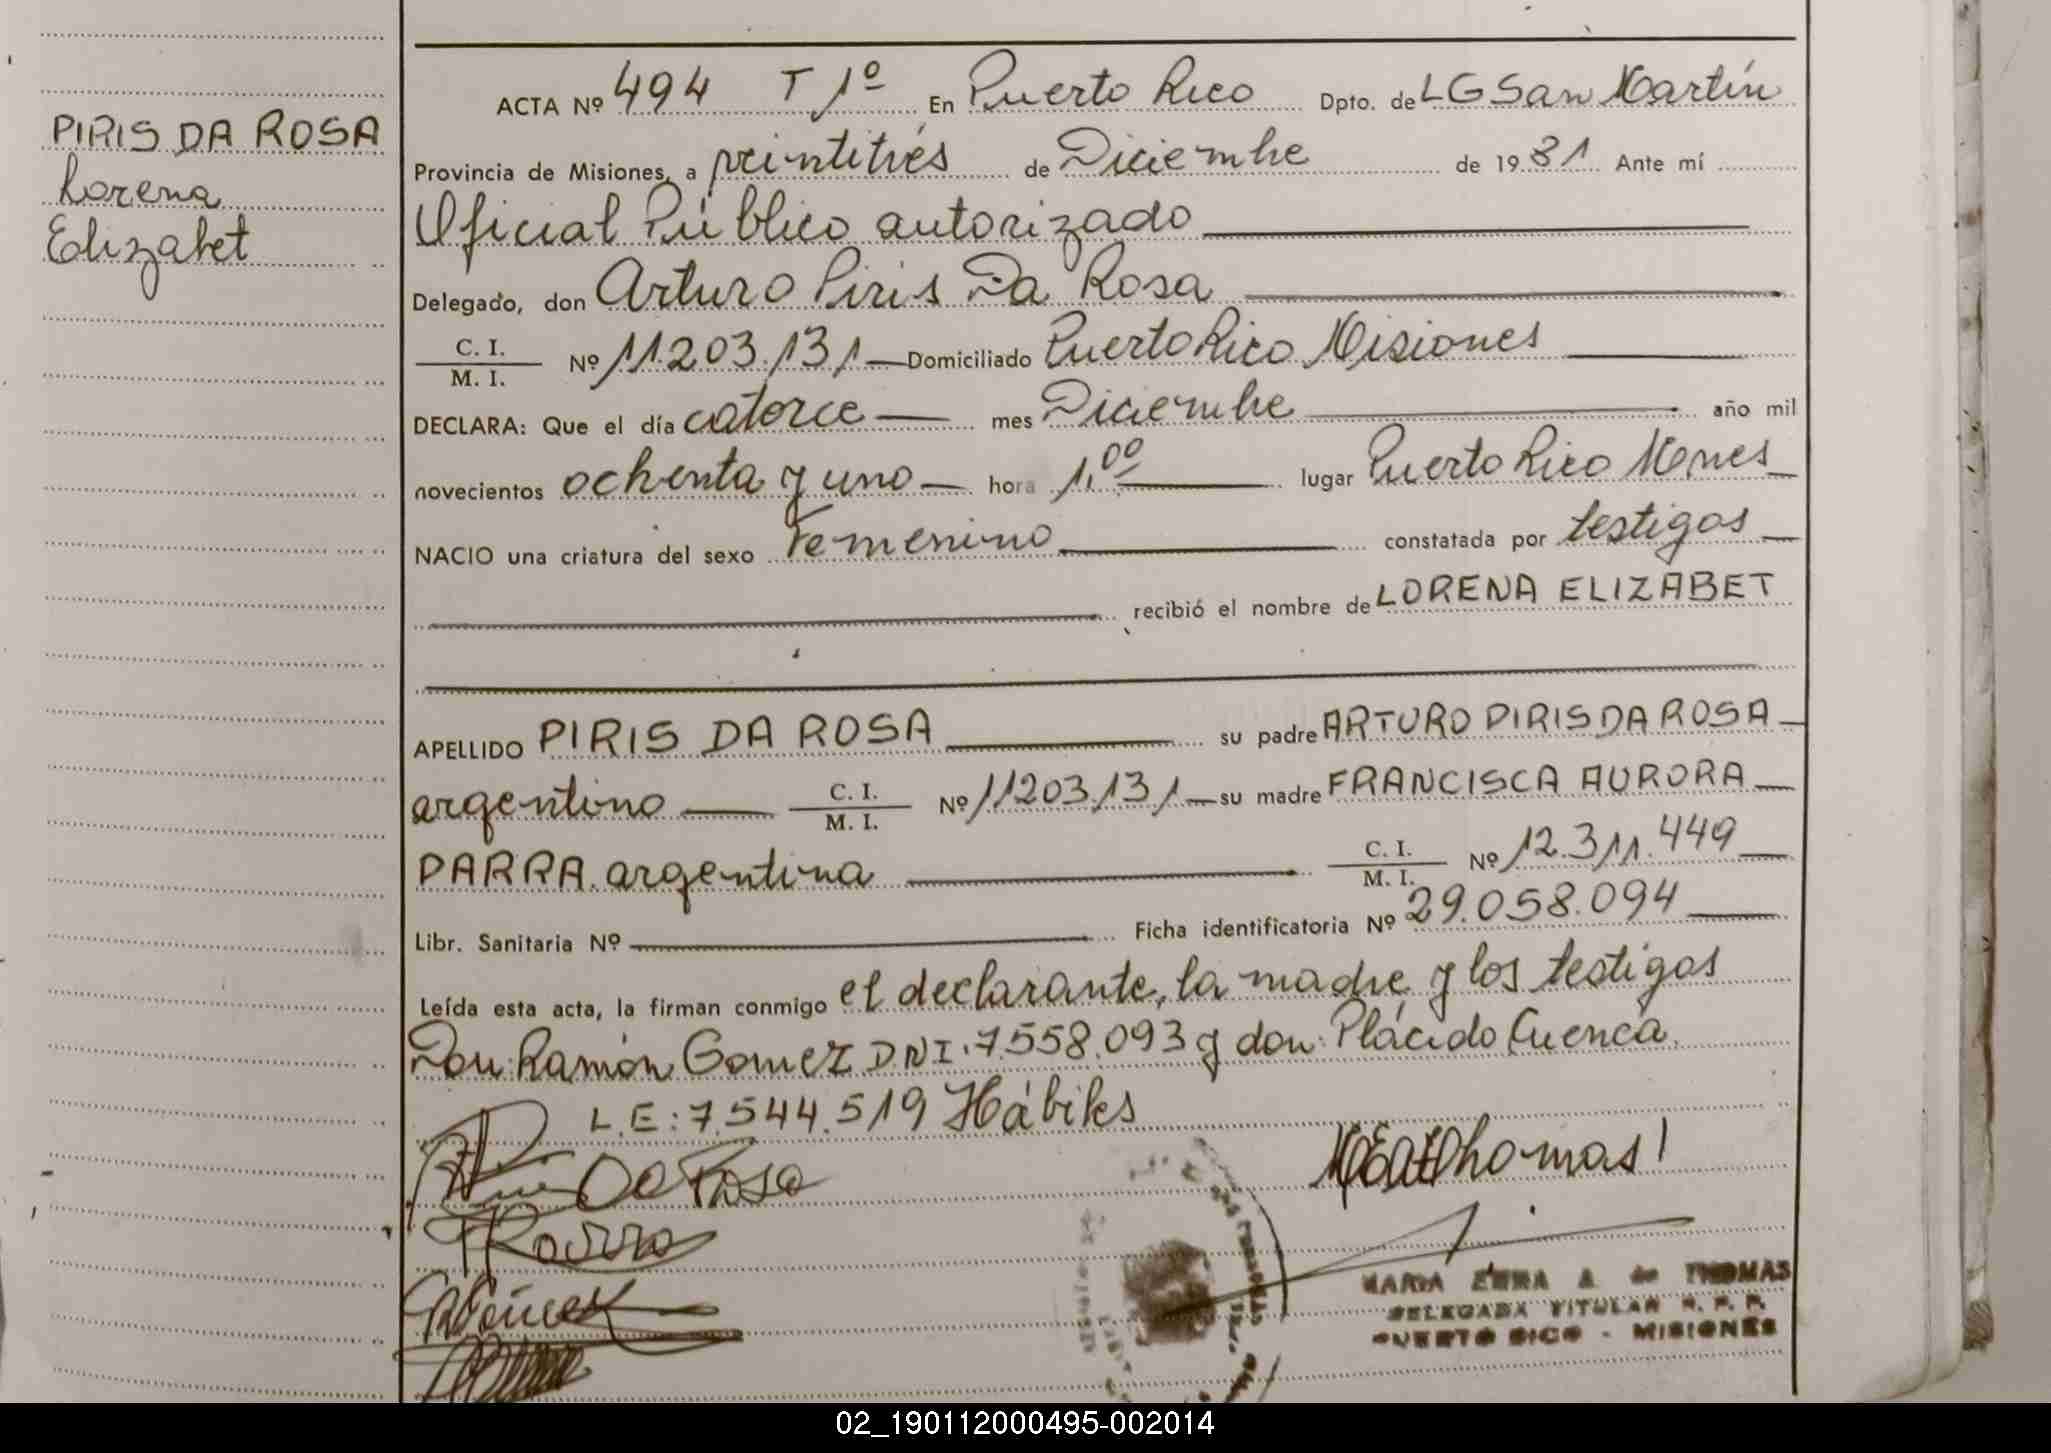 PIRIS DA ROSA
Lorena
Elizabet
ACTA Nº 494 T 1º En Puerto Rico Dpto. de LG San Martín
Provincia de Misiones, a veintitrés de Diciembre de 1981 Ante mí
Oficial Público autorizado
Delegado, don Arturo Piris Da Rosa
C. I.
M. I. Nº 11.203.131 Domiciliado Puerto Rico Misiones
DECLARA: Que el día catorce mes Diciembre año mil
novecientos ochenta y uno hora 1,00 lugar Puerto Rico Mnes
NACIO una criatura del sexo Femenino constatada por testigos
recibió el nombre de LORENA ELIZABET
APELLIDO PIRIS DA ROSA su padre ARTURO PIRIS DA ROSA
argentino C. I.
M. I. Nº 11203.131 su madre FRANCISCA AURORA
PARRA argentina C. I.
M. I. Nº 12.311.449
Libr. Sanitaria Nº Ficha identificatoria Nº 29.058.094
Leída esta acta, la firman conmigo el declarante, la madre y los testigos
Don: Ramón Gomez D.N.I. 7.558.093 y don: Plácido Cuenca
L.E: 7.544.519 Hábiles
Da Rosa
MARIA EMMA A. de THOMAS
DELEGADA TITULAR R. P. P.
PUERTO RICO - MISIONES
02_190112000495-002014